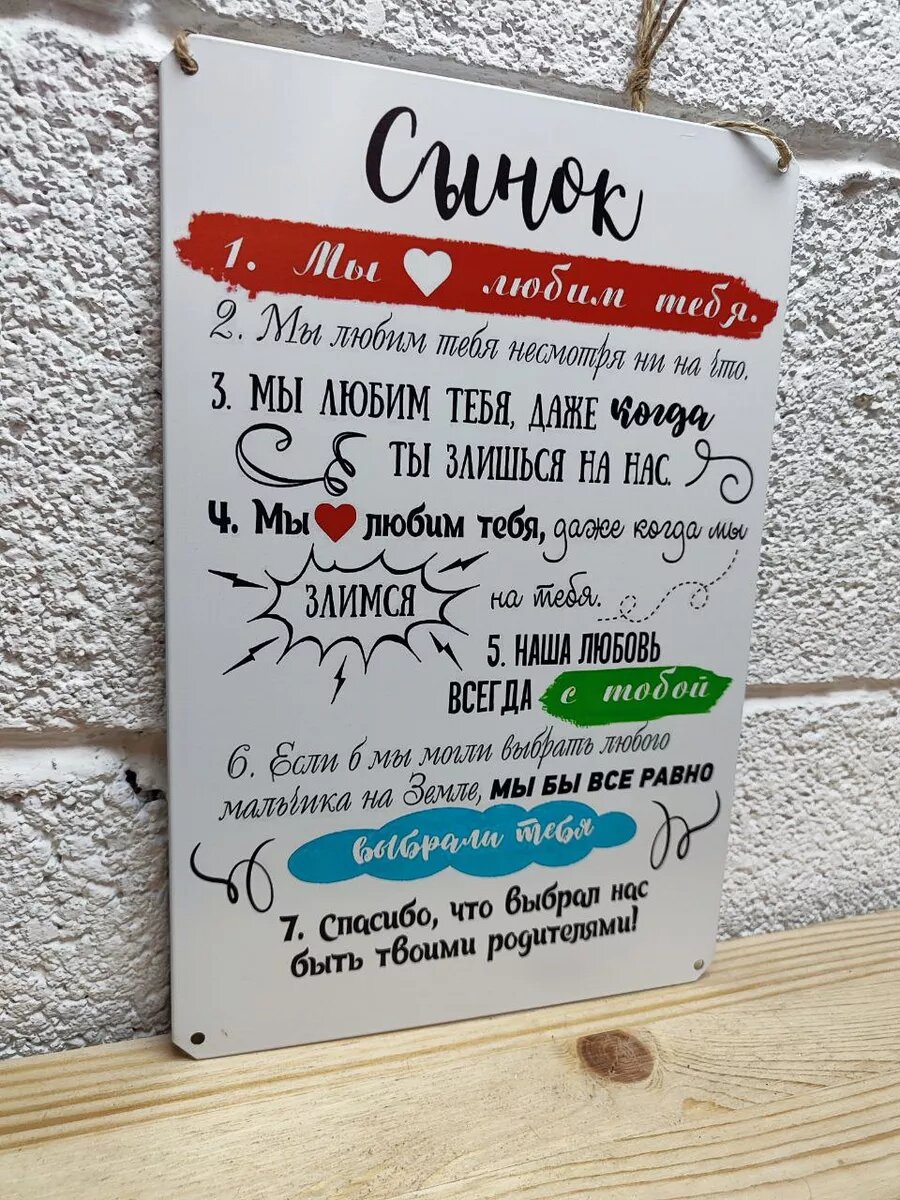 Сынок
1. Мы любим тебя.
2. Мы любим тебя несмотря ни на что.
3. МЫ ЛЮБИМ ТЕБЯ, ДАЖЕ когда
ТЫ ЗЛИШЬСЯ НА НАС.
4. Мы любим тебя, даже когда мы
ЗЛИМСЯ на тебя.
5. НАША ЛЮБОВЬ
ВСЕГДА с тобой
6. Если б мы могли выбрать любого
мальчика на Земле, МЫ БЫ ВСЕ РАВНО
выбрали тебя
7. Спасибо, что выбрал нас
быть твоими родителями!